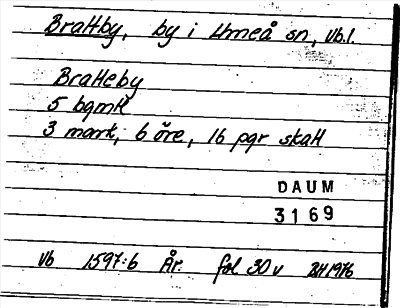 Brattby, by i Umeå sn, Vb.l.
Bratteby
5 bgmtt
3 mark, 6 öre, 16 pgr skatt
DAUM
3169
Vb 1597:6 År. fol 30 v